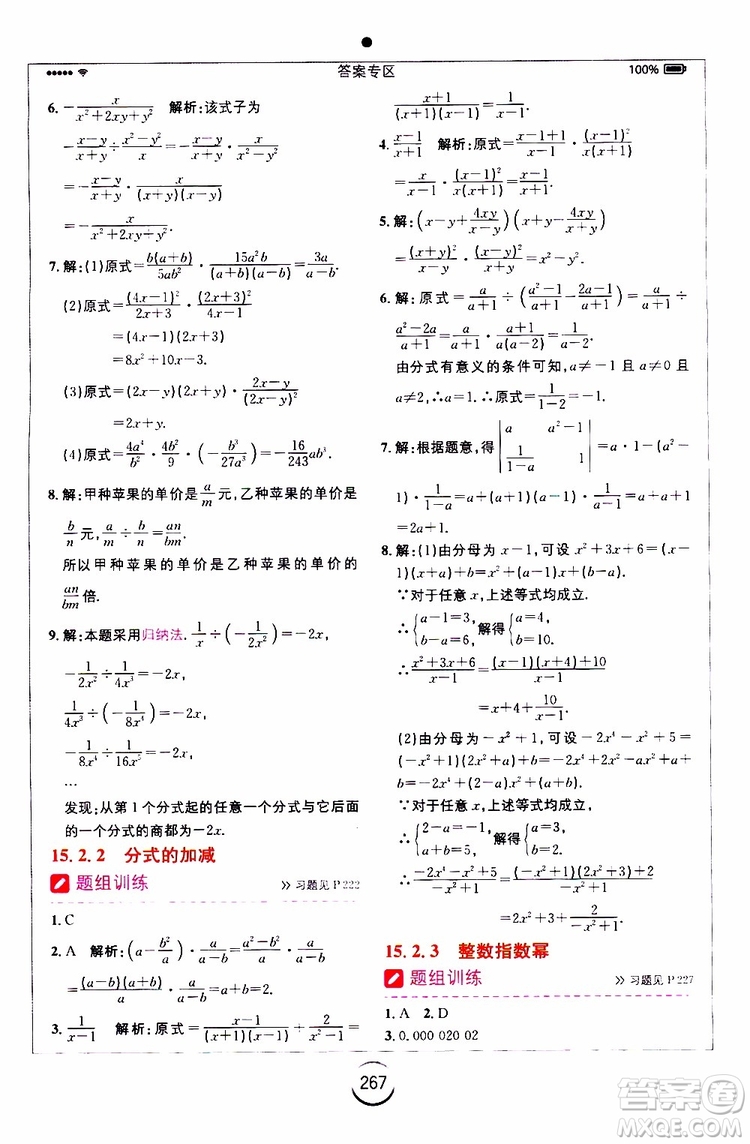 答案专区
100%
6. $-\frac{x}{x^2+2xy+y^2}$ 解析:该式子为
$-\frac{x-y}{x+y}\div\frac{x^2-y^2}{x}=-\frac{x-y}{x+y}\cdot\frac{x}{x^2-y^2}$
$=-\frac{x-y}{x+y}\cdot\frac{x}{(x+y)(x-y)}$
$=-\frac{x}{x^2+2xy+y^2}$.
7. 解:(1)原式$=\frac{b(a+b)}{5ab^2}\cdot\frac{15a^2b}{(a+b)(a-b)}=\frac{3a}{a-b}$.
(2)原式$=\frac{(4x-1)^2}{2x+3}\cdot\frac{(2x+3)^2}{4x-1}$
$=(4x-1)(2x+3)$
$=8x^2+10x-3$.
(3)原式$=2x(2x-y)\cdot\frac{2x-y}{(2x-y)^2}$
$=2x$.
(4)原式$=\frac{4a^4}{b^2}\cdot\frac{4b^2}{9}\cdot(-\frac{b^3}{27a^3})=-\frac{16}{243}ab^3$.
8. 解:甲种苹果的单价是$\frac{a}{m}$元,乙种苹果的单价是
$\frac{b}{n}$元,$\frac{a}{m}\div\frac{b}{n}=\frac{an}{bm}$.
所以甲种苹果的单价是乙种苹果的单价的
$\frac{an}{bm}$倍.
9. 解:本题采用归纳法. $\frac{1}{x}\div(-\frac{1}{2x^2})=-2x$,
$-\frac{1}{2x^2}\div\frac{1}{4x^3}=-2x$,
$\frac{1}{4x^3}\div(-\frac{1}{8x^4})=-2x$,
$-\frac{1}{8x^4}\div\frac{1}{16x^5}=-2x$,
…
发现:从第1个分式起的任意一个分式与它后面
的一个分式的商都为$-2x$.
15.2.2 分式的加减
题组训练 >> 习题见 P 222
1. C
2. A 解析:$(a-\frac{b^2}{a})\cdot\frac{a}{a-b}=\frac{a^2-b^2}{a}\cdot\frac{a}{a-b}$
$=\frac{(a-b)(a+b)}{a}\cdot\frac{a}{a-b}=a+b=2$.
3. $\frac{1}{x-1}$ 解析:原式$=\frac{x}{(x+1)(x-1)}+\frac{1}{x^2-1}=$
$\frac{x+1}{(x+1)(x-1)}=\frac{1}{x-1}$.
4. $\frac{x-1}{x+1}$ 解析:原式$=\frac{x-1+1}{x-1}\div\frac{x(x+1)}{(x-1)^2}$
$=\frac{x}{x-1}\cdot\frac{(x-1)^2}{x(x+1)}=\frac{x-1}{x+1}$.
5. 解:$(x-y+\frac{4xy}{x-y})(x+y-\frac{4xy}{x+y})$
$=\frac{(x+y)^2}{x-y}\cdot\frac{(x-y)^2}{x+y}=x^2-y^2$.
6. 解:原式$=\frac{a}{a+1}\div(\frac{a^2-1}{a+1}-\frac{2a-1}{a+1})=\frac{a}{a+1}\div$
$\frac{a^2-2a}{a+1}=\frac{a}{a+1}\cdot\frac{a+1}{a(a-2)}=\frac{1}{a-2}$.
由分式有意义的条件可知,$a\neq-1$ 且 $a\neq0$ 且
$a\neq2$,∴$a=1$. ∴原式$=\frac{1}{1-2}=-1$.
7. 解:根据题意,得$\begin{vmatrix}a&a^2-1\\\frac{1}{1-a}&1\end{vmatrix}=a\cdot1-(a^2-$
$1)\cdot\frac{1}{1-a}=a+(a+1)(a-1)\cdot\frac{1}{a-1}=2a+1$.
8. 解:(1)由分母为$x-1$,可设$x^2+3x+6=(x-$
$1)(x+a)+b=x^2+(a-1)x+(b-a)$.
∵对于任意$x$,上述等式均成立.
∴$\begin{cases}a-1=3,\\b-a=6,\end{cases}$解得$\begin{cases}a=4,\\b=10.\end{cases}$
∴$\frac{x^2+3x+6}{x-1}=\frac{(x-1)(x+4)+10}{x-1}$
$=x+4+\frac{10}{x-1}$.
(2)由分母为$-x^2+1$,可设$-2x^4-x^2+5=$
$(-x^2+1)(2x^2+a)+b=-2x^4+(2-a)x^2+(a+b)$.
∵对于任意$x$,上述等式均成立,
∴$\begin{cases}2-a=-1,\\a+b=5,\end{cases}$解得$\begin{cases}a=3,\\b=2.\end{cases}$
∴$\frac{-2x^4-x^2+5}{-x^2+1}=\frac{(-x^2+1)(2x^2+3)+2}{-x^2+1}$
$=2x^2+3+\frac{2}{-x^2+1}$.
15.2.3 整数指数幂
题组训练 >> 习题见 P 227
1. A 2. D
3. 0.000 020 02
267
答案圈
MXQE.COM